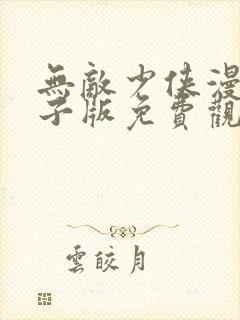 無敵少俠漫
子版免費觀
雲皎月